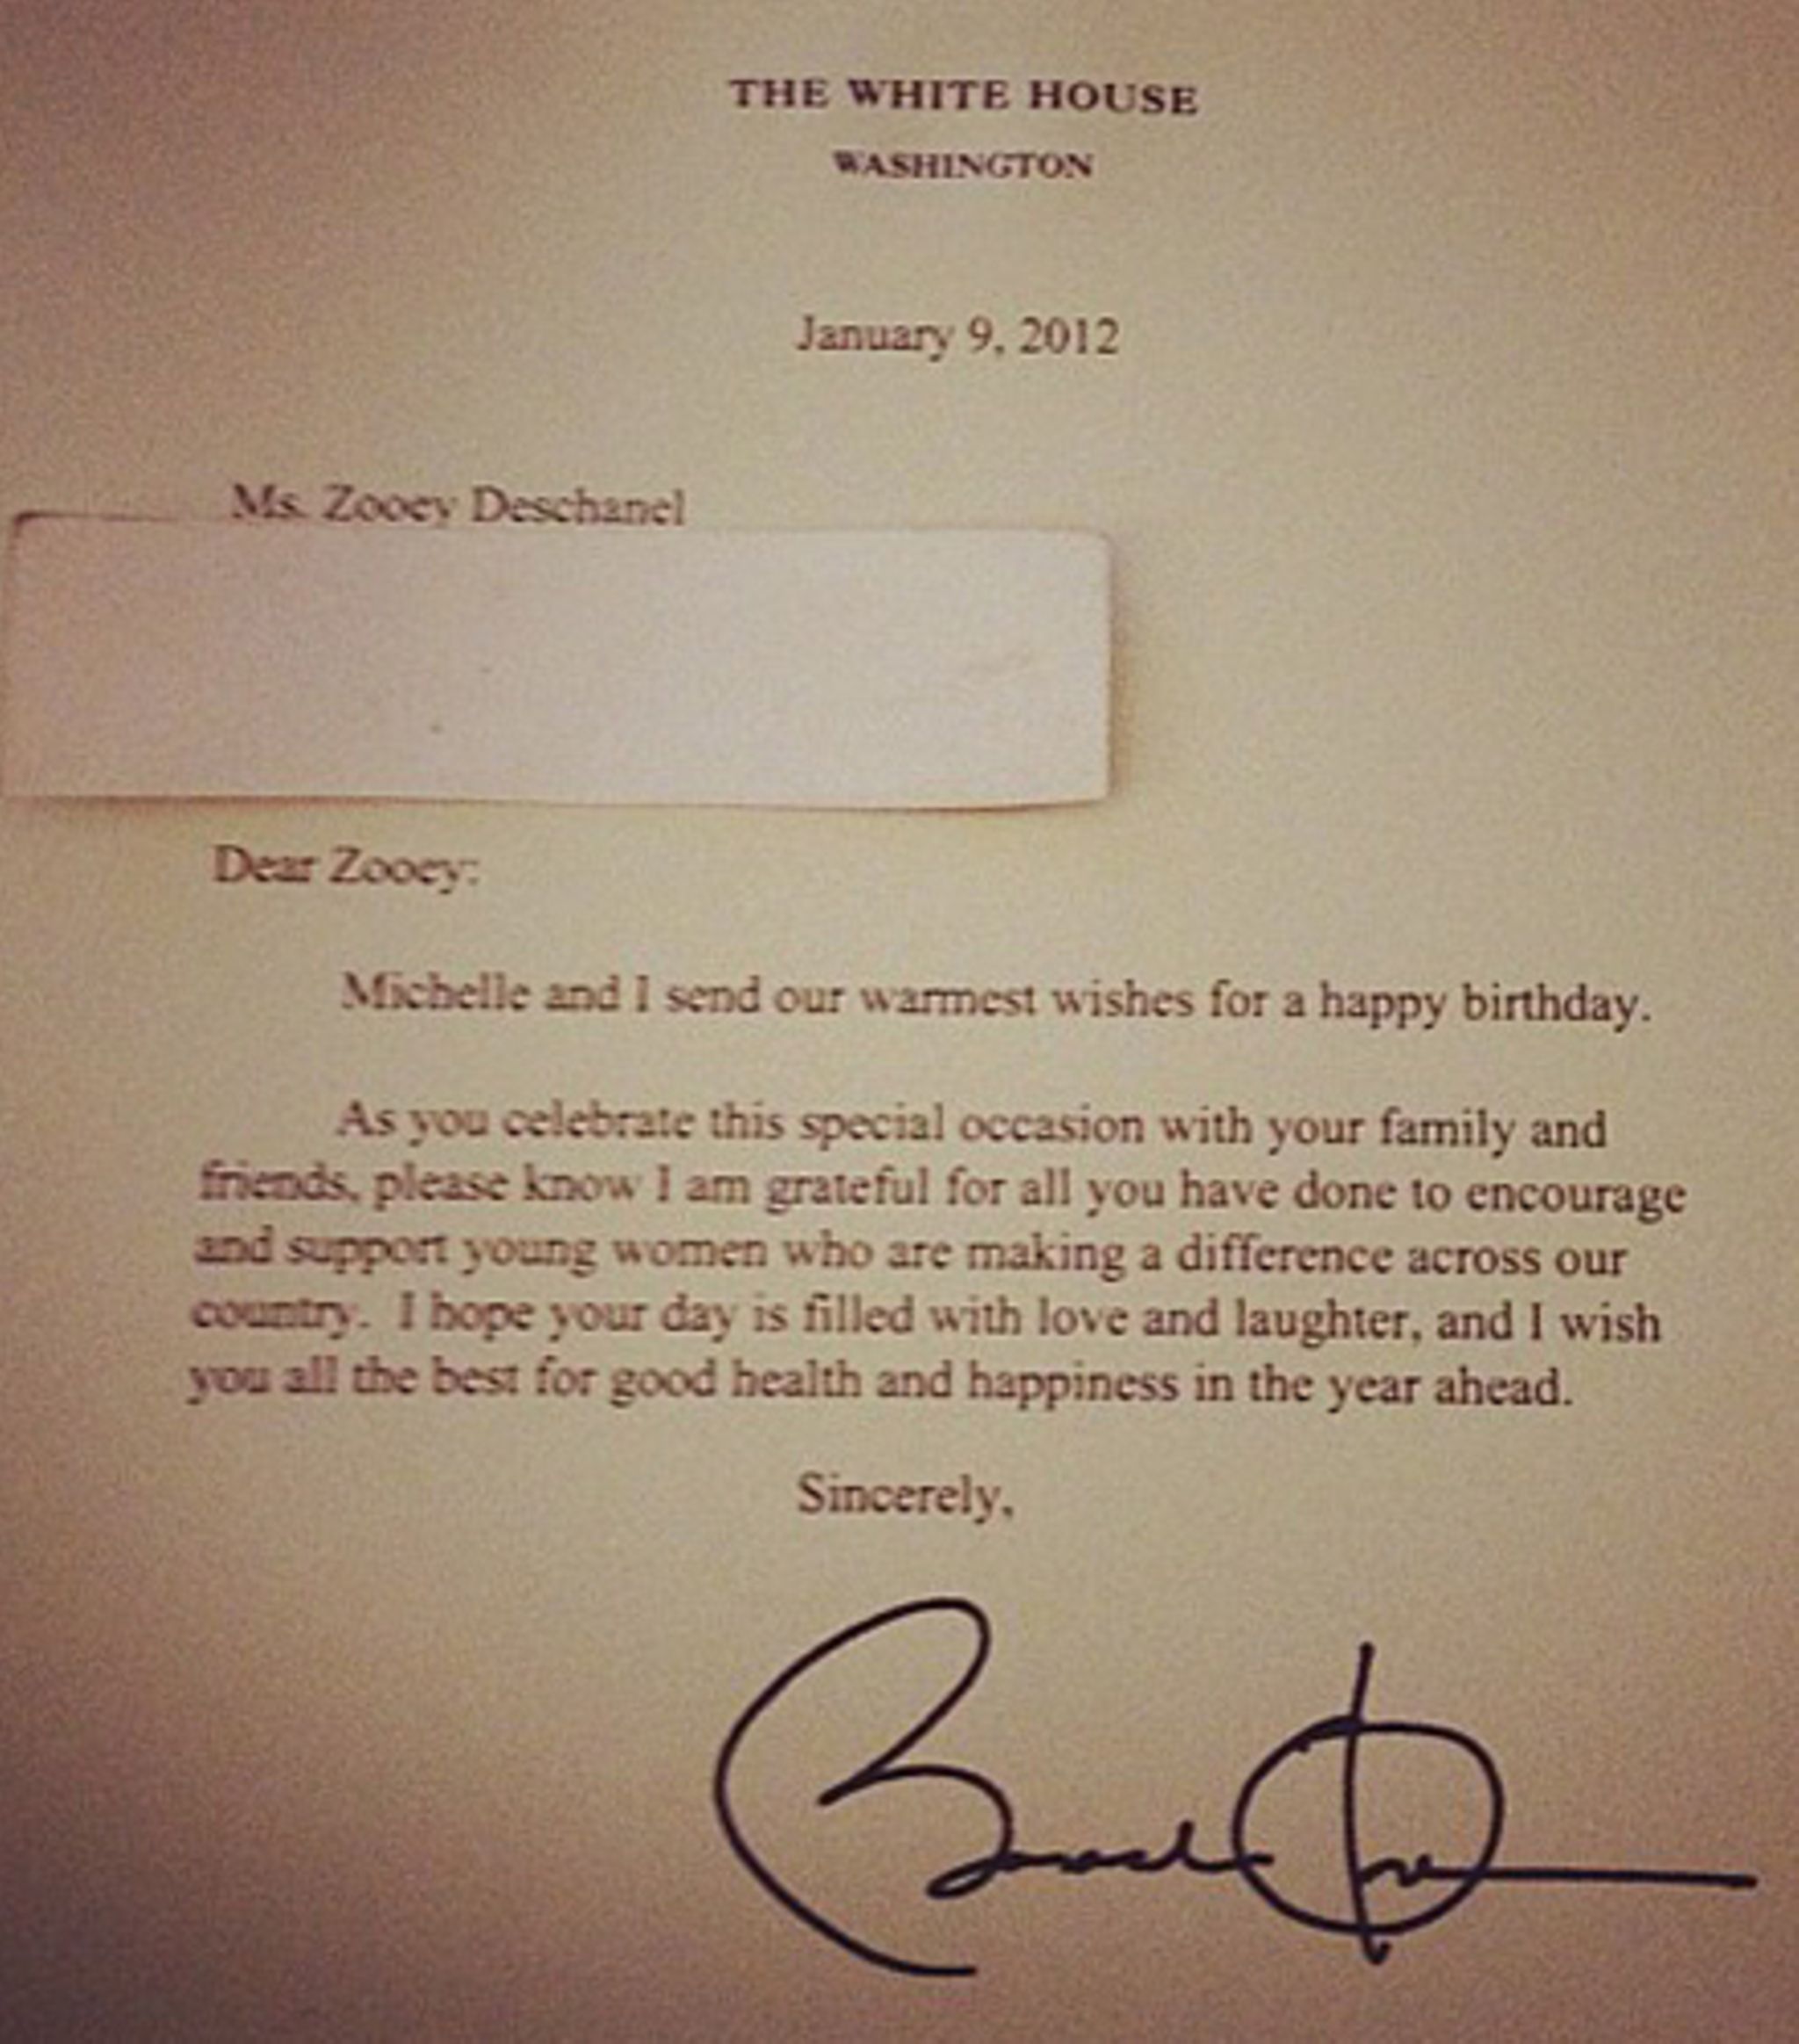 THE WHITE HOUSE
WASHINGTON
January 9, 2012
Ms. Zooey Deschanel
Dear Zooey:
Michelle and I send our warmest wishes for a happy birthday.
As you celebrate this special occasion with your family and
friends, please know I am grateful for all you have done to encourage
and support young women who are making a difference across our
country.  I hope your day is filled with love and laughter, and I wish
you all the best for good health and happiness in the year ahead.
Sincerely,